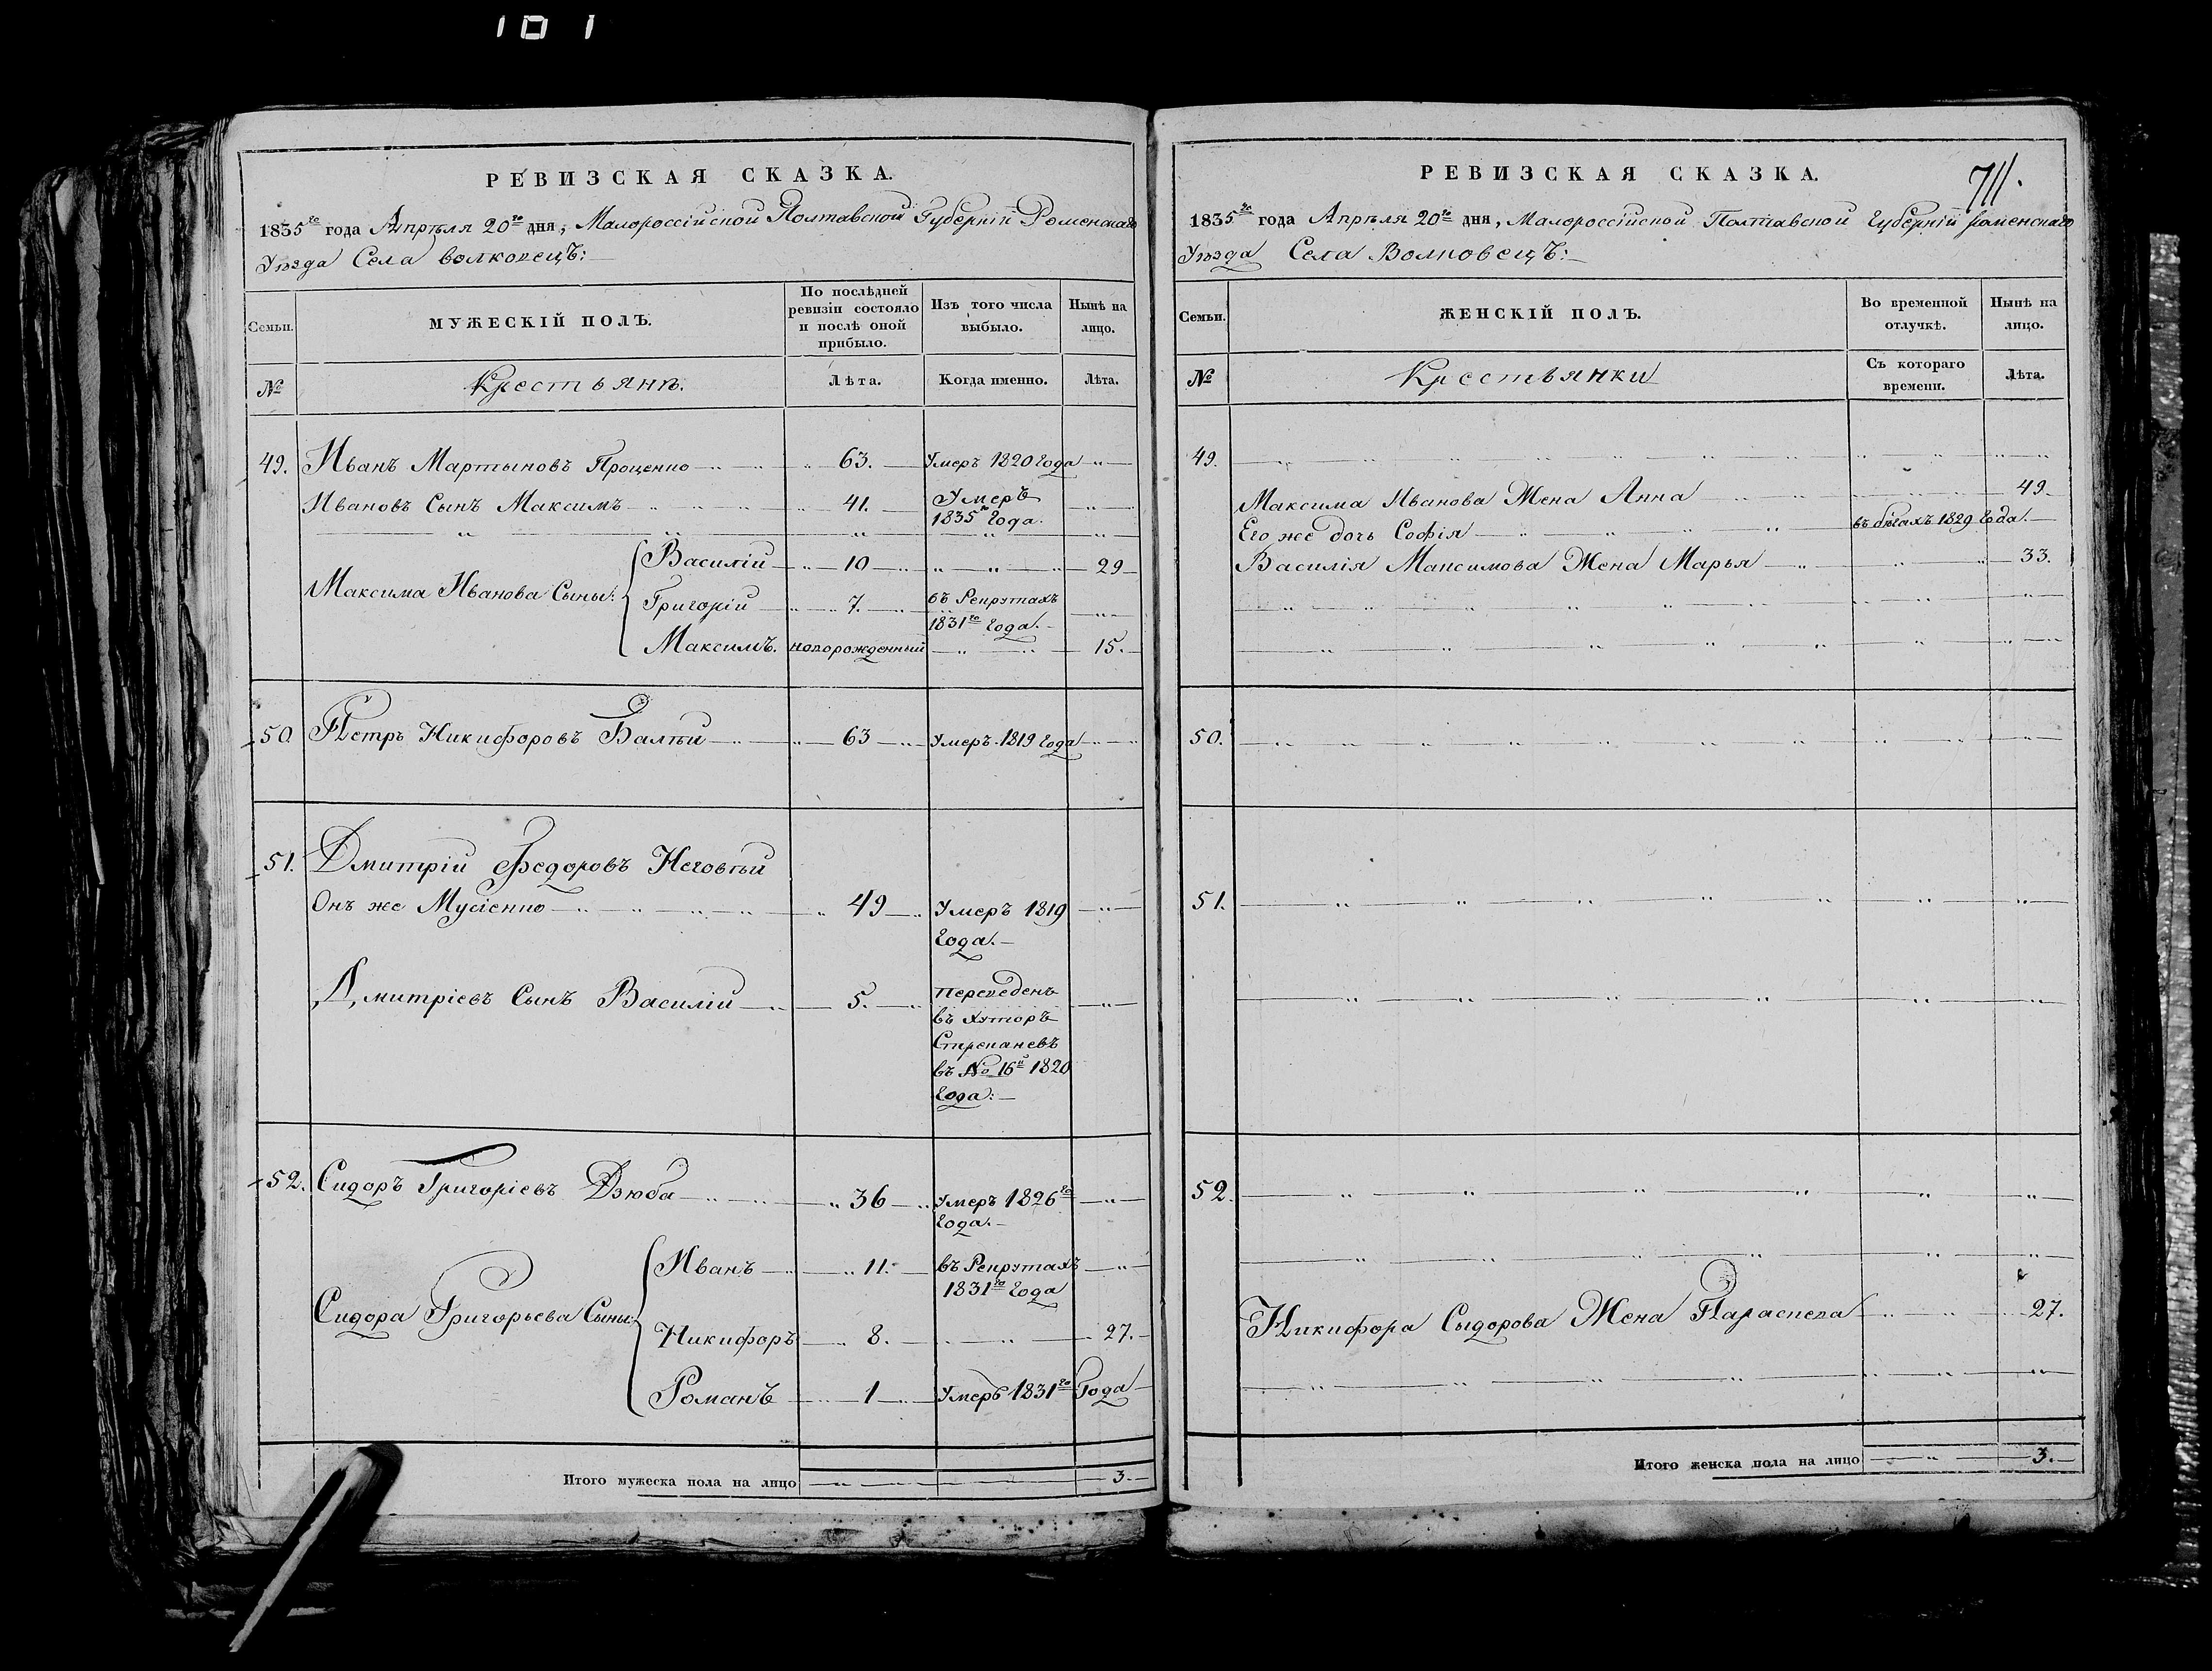 101
РЕВИЗСКАЯ СКАЗКА.
1835го года Апрѣля 20го дня, Малороссійской Полтавской Губерніи Роменскаго
Уѣзда Села Волковецъ:
Семьи.
МУЖЕСКІЙ ПОЛЪ.
По послѣдней ревизіи состояло и послѣ оной прибыло.
Изъ того числа выбыло.
Нынѣ на лицо.
№ Крестьянъ. Лѣта. Когда именно. Лѣта.
49. Иванъ Мартыновъ Проценко 63. Умеръ 1820 Года
Ивановъ Сынъ Максимъ 41. Умеръ
1835 Года.
Максима Иванова Сыны:
Василій 10 29
Григорій 7. въ Рекрутахъ
1831го Года.
Максимъ. новорожденный 15.
50 Петръ Никифоровъ 63 Умеръ 1819 Года
51. Дмитрій Федоровъ
Онъ же Мусіенко 49 Умеръ 1819
Года.
Дмитріевъ Сынъ Василій 5. Переведенъ
въ Хуторъ
въ № 16й 1820
Года:
52. Сидоръ Григоріевъ Дзюба 36 Умеръ 1826го
Года.
Сидора Григорьева Сыны:
Иванъ 11. въ Рекрутахъ
1831го Года
Никифоръ 8. 27.
Романъ 1 Умеръ 1831го Года
Итого мужеска пола на лицо 3.
РЕВИЗСКАЯ СКАЗКА.
711.
1835го года Апрѣля 20го дня, Малороссійской Полтавской Губерніи Роменскаго
Уѣзда Села Волковецъ:
Семьи.
ЖЕНСКІЙ ПОЛЪ.
Во временной отлучкѣ.
Нынѣ на лицо.
№ Крестьянки Съ котораго времени. Лѣта.
49.
Максима Иванова Жена Анна 49.
Его же дочь Софія въ бѣгахъ 1829 Года.
Василія Максимова Жена Марья 33.
50.
51.
52.
Никифора Сыдорова Жена Параскева 27.
Итого женска пола на лицо 3.